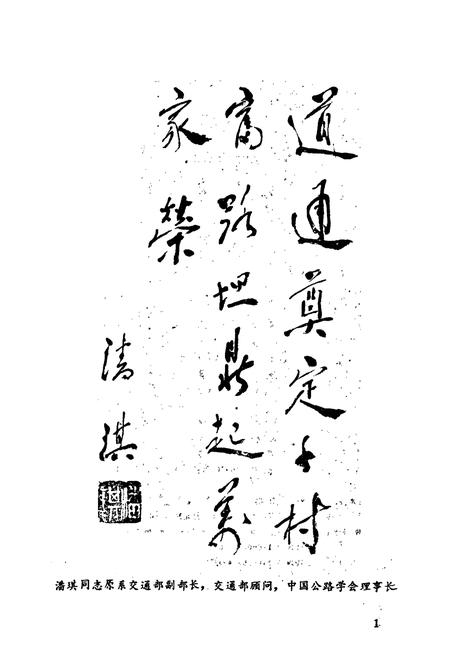 道通奠定千村
富路坦鼎起万
家荣
潘琪
潘琪同志原系交通部副部长，交通部顾问，中国公路学会理事长
1